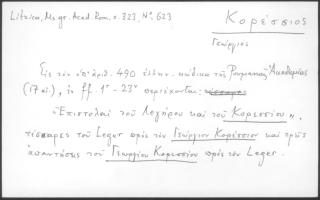 Litzica, Ms. gr. Acad. Rom. σ. 323, Nº. 623
Κορέσσιος
Γεώργιος
Εἰς τὸν ὑπ' ἀριθ. 490 ἑλλην. κώδικα τῆς Ρουμανικῆς Ἀκαδημίας
(17 αἰ.), ἐν ff. 1ʳ - 23ᵛ περιέχονται:
"Ἐπιστολαὶ τοῦ Λεγήρου καὶ τοῦ Κορεσσίου",
τέσσαρες τοῦ Leger πρὸς τὸν Γεώργιον Κορέσσιον καὶ τρεῖς
ἀπαντήσεις τοῦ Γεωργίου Κορεσσίου πρὸς τὸν Leger.